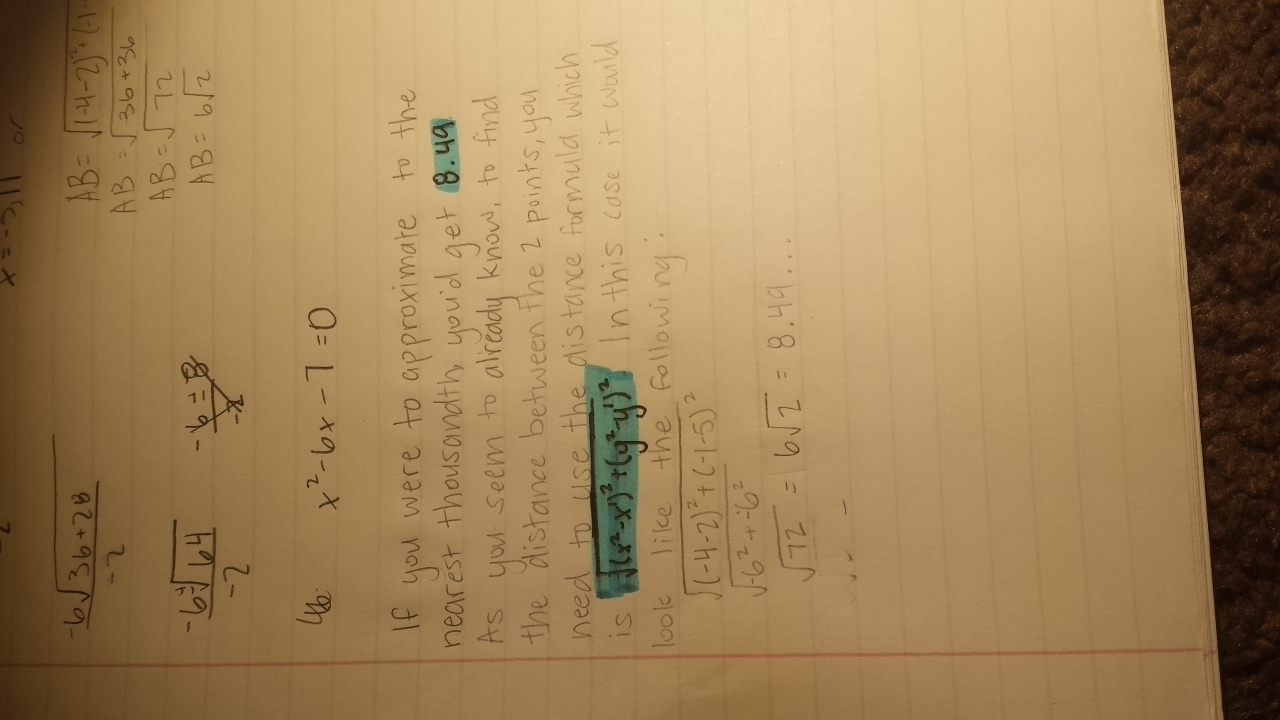 x = -3, 11 or
-2
-6√36+28
-2
AB = √(-4-2)²+(-1-
AB = √36+36
AB = √72
AB = 6√2
-6±√64
-2
-6±8
-2
4b. x²-6x-7=0
If you were to approximate to the
nearest thousandth, you'd get 8.49.
As you seem to already know, to find
the distance between the 2 points, you
need to use the distance formula which
is √(x²-x¹)²+(y²-y¹)² In this case it would
look like the following:
√(-4-2)²+(-1-5)²
√-6²+-6²
√72 = 6√2 = 8.49...